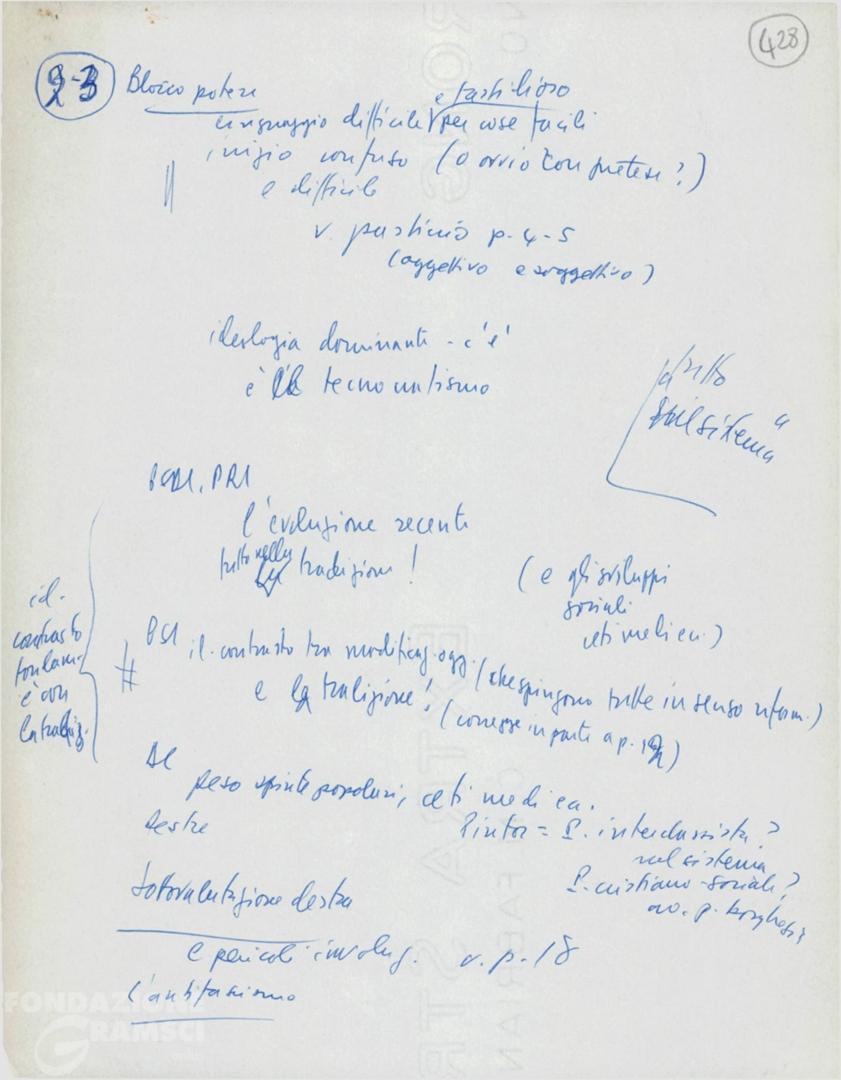 428
Blocco potere
linguaggio difficile e fastidioso per cose facili
inizio confuso (o ovvio con pretese?)
e difficile
v. pasticcio p. 4-5
(oggettivo e soggettivo)
ideologia dominante - c'è
è il tecnocratismo
tutto
sul sistema"
PSDI, PRI
l'evoluzione recente
tutto nella tradizione!
(e gli sviluppi
sociali
ceti medi ecc.)
id.
contrasto
fondam.
è con
la tradiz.
PSI il contrasto tra modificaz. ogg. (che spingono tutte in senso riform.)
e la tradizione! (corregge in parte a p. 12)
DC
peso spinte popolari, ceti medi ecc.
destre
Pintor = P. interclassista?
nel sistema
P. cristiano-sociale?
no. p. borghese
sottovalutazione destra
e pericoli involuz. v. p. 18
l'antifascismo
FONDAZIONE
GRAMSCI